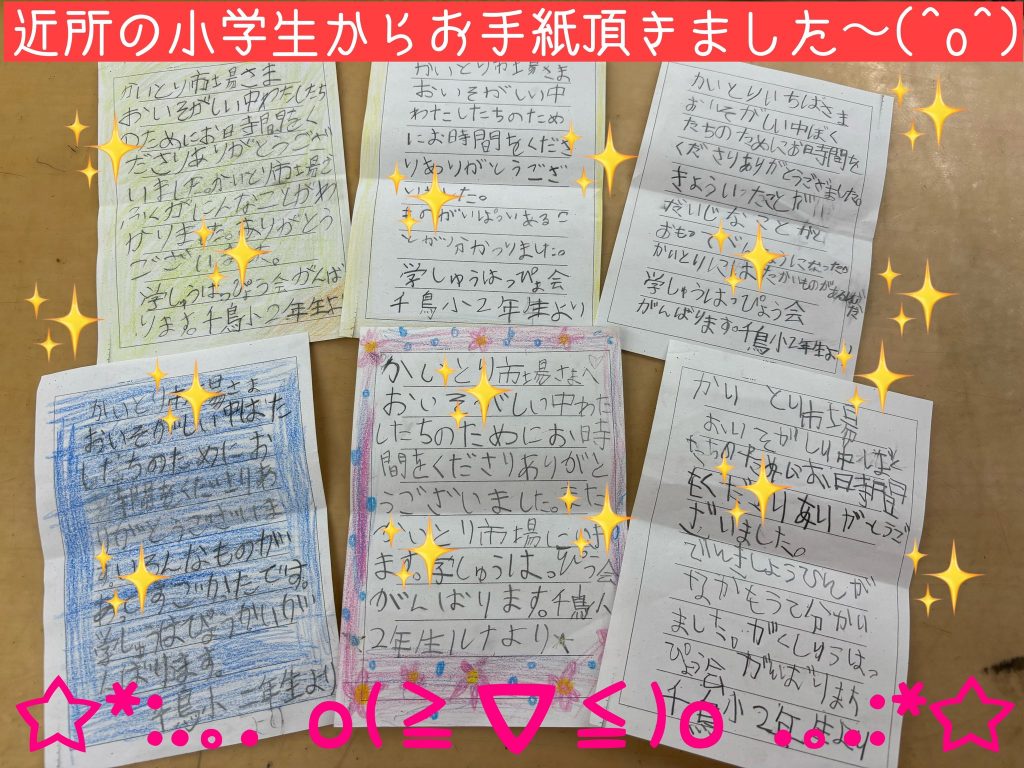 近所の小学生からお手紙頂きました～(^o^)
かいとり市場さま
おいそがしい中わたしたち
のためにお日時間をく
ださりありがとうござ
いました。かいとり市場
りました。ありがとう
ございました。
学しゅうはっぴょう会がんば
ります。千鳥小2年生より
かいとり市場さま
おいそがしい中
わたしたちのため
にお時間をくださ
りありがとうござ
いました。
ものがいぱいあるこ
とが分かつりました。
学しゅうはっぴょ会
千鳥小2年生より
かいとりいちばさま
おいそがしい中ぼく
たちのためにお日時間を
くださりありがとうございました。
だいじなこと
学しゅうはっぴょう会
がんばります。千鳥小2年生より
かいとり市場さま
おいそがしい中わた
したちのためにお
時間をくださりあ
りがとうございま
ろんなものがい
あて すごかたです。
千鳥小 二年生より
かいとり市場さまへ♡
おいそがしい中わた
したちのためにお時
間をくださりありがと
うございました。また
かいとり市場に
ます。学しゅうはっぴょう会
がんばります。千鳥小
2年生ルナより
かいとり市場
おいそがしい中ぼく
たちのためにお日時間
をくださりありがとうご
ざいました。
ました。がくしゅうはっ
ぴょう会 がんばります
千鳥小2年生より
☆*:.｡. o(≧▽≦)o .｡.:*☆